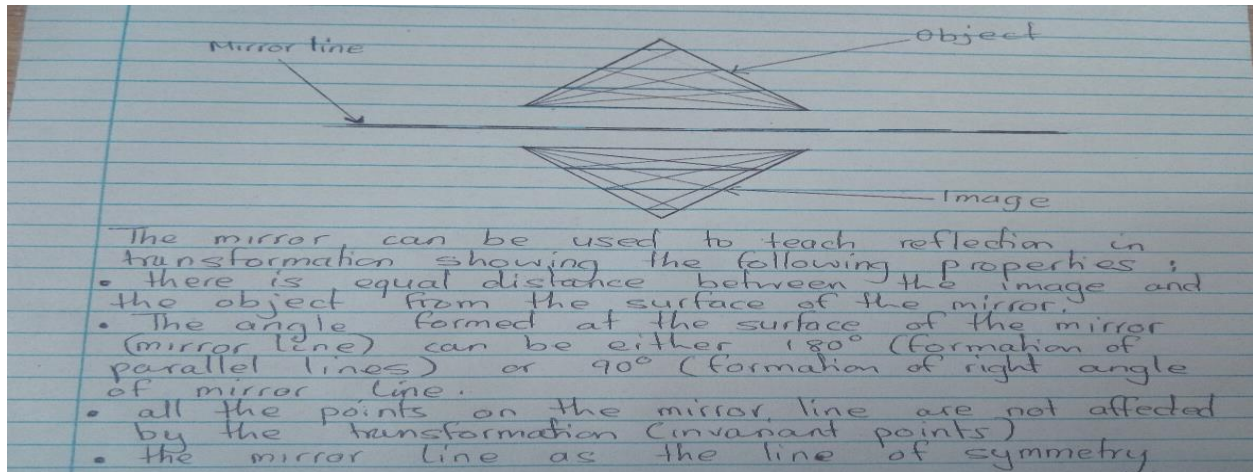 Mirror line
Object
Image
The mirror can be used to teach reflection in
transformation showing the following properties:
• there is equal distance between the image and
the object from the surface of the mirror.
• The angle formed at the surface of the mirror
(mirror line) can be either 180° (formation of
parallel lines) or 90° (formation of right angle
of mirror line.
• all the points on the mirror line are not affected
by the transformation (invariant points)
• the mirror line as the line of symmetry